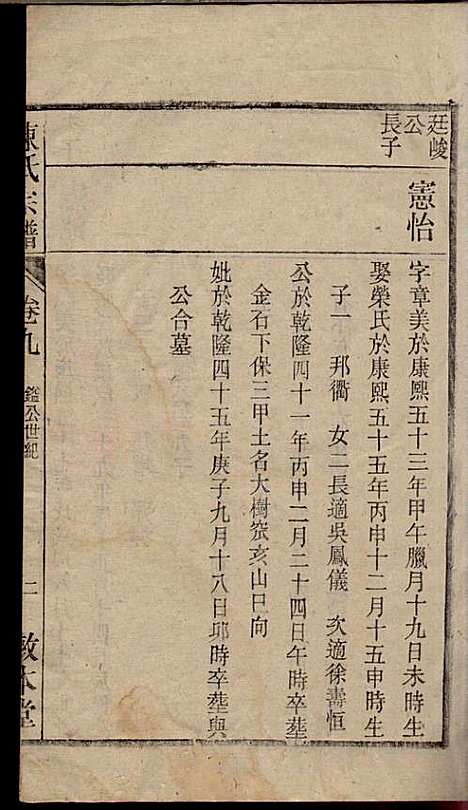 廷峻
公
長子
憲怡
字章美於康熙五十三年甲午臘月十九日未時生
娶榮氏於康熙五十五年丙申十二月十五申時生
子一 邦衢 女二長適吳鳳儀 次適徐壽恒
公於乾隆四十一年丙申二月二十四日午時卒塟
金石下保三甲土名大樹窊亥山巳向
妣於乾隆四十五年庚子九月十八日邜時卒塟與
公合墓
陳氏宗譜
卷九
鑑公世紀
二
敦本堂